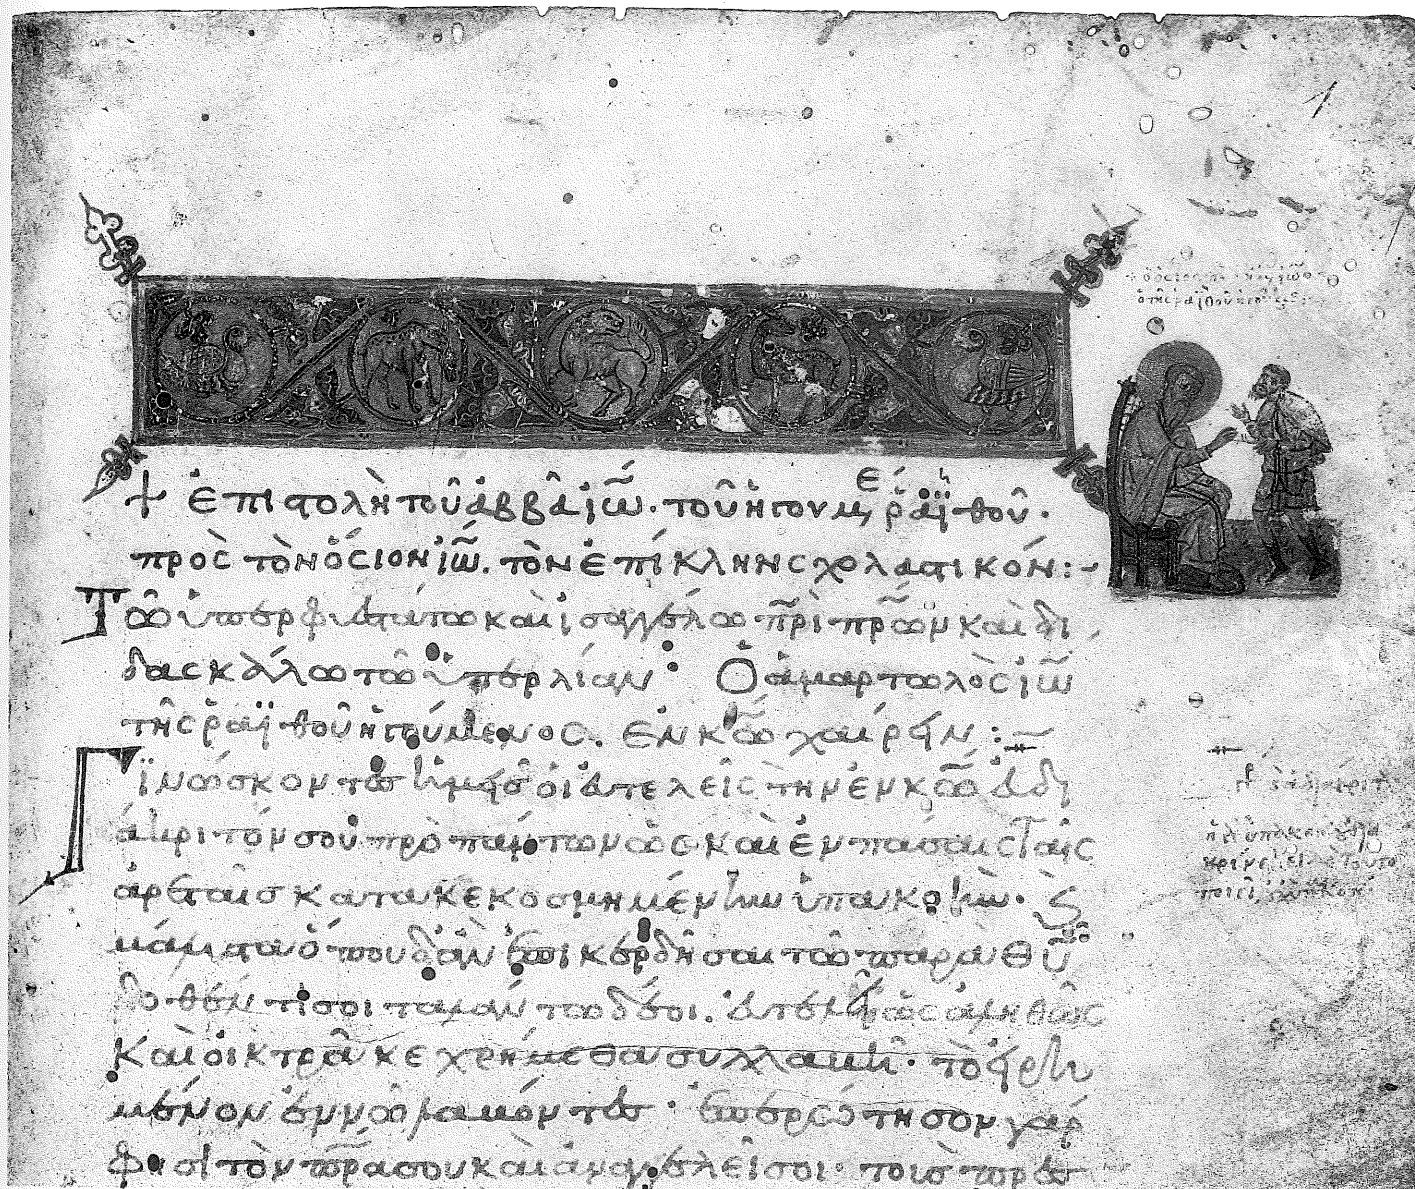 1
+ ἐπιστολὴ τοῦ ἀββᾶ ἰω̅. τοῦ ἡγουμέ ῥαϊθοῦ.
πρὸς τὸν ὅσιον ἰω̅. τὸν ἐπίκλην σχολαστικόν:-
Τῶ ὑπερφυεστάτω καὶ ἰσαγγέλω π̅ρ̅ὶ π̅ρ̅ῶν καὶ δι
δασκάλω τῶ ὑπερλίαν Ὁ ἁμαρτωλὸς ἰω̅
τῆς ῥαϊθοῦ ἡγούμενος. ἐν κ̅ω̅ χαίρειν:
Γινώσκοντες ἡμεῖς οἱ ἀτελεῖς τὴν ἐν κ̅ω̅ ἀδι
άκριτόν σου πρὸ πάντων ὡς καὶ ἐν πάσαις ταῖς
ἀρεταῖς κατακεκοσμημένην ὑπακοήν. καὶ
μάλιστα ὅπου δἂν ἐπικερδῆσαι τῶ παρὰ θ̅υ̅
δοθέν τί σοι ταλάντω δέοι. ἀτελῶς ἀληθῶς
καὶ οἰκτρᾶ κεχρήμεθα συλλαβῆ. τὸ εἰρη
μένον ἐννοήσαντες. ἐπερώτησον γάρ
φησὶ τὸν π̅ρ̅α σου καὶ ἀναγγελεῖ σοι. τοὺς πρεσ